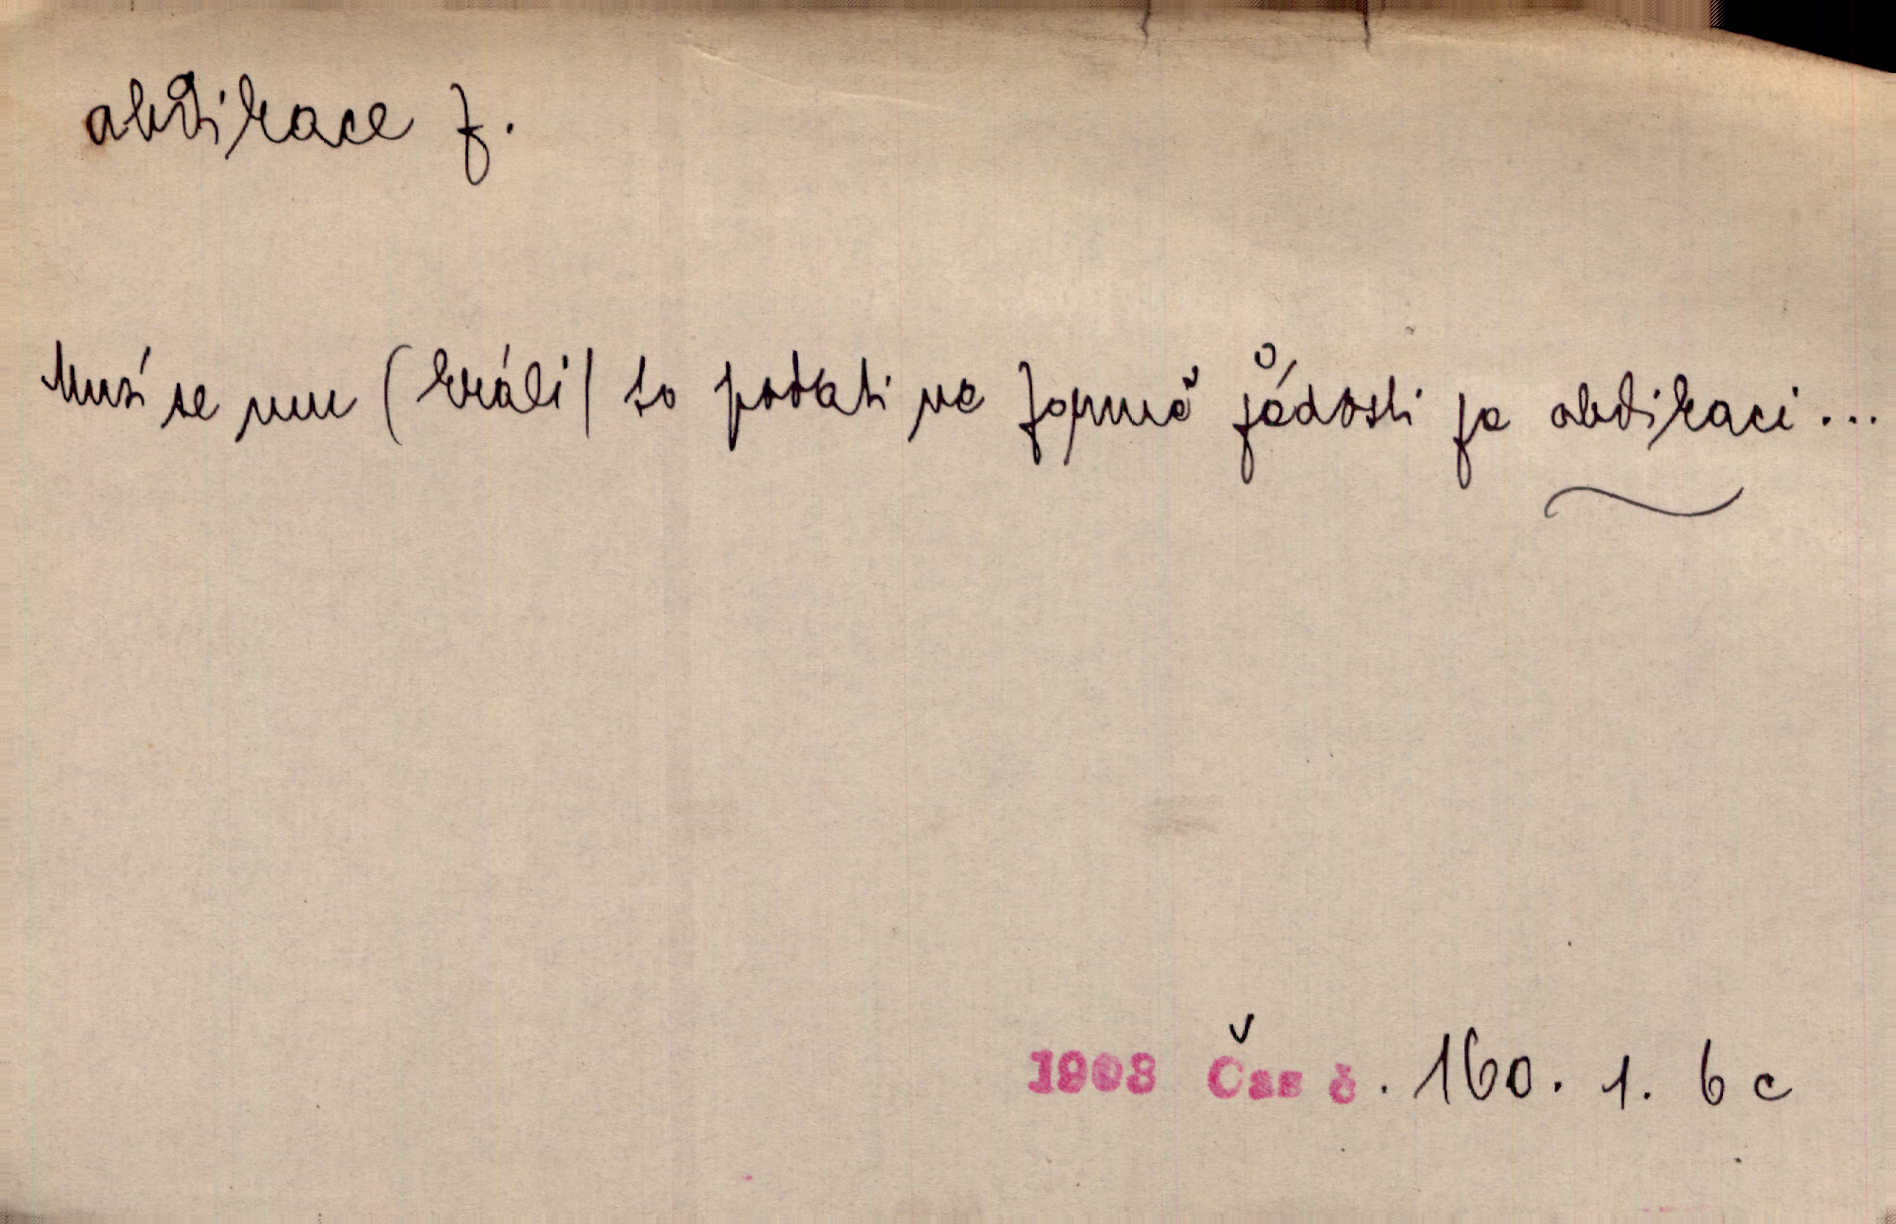 abdikace f.
Musí se mu (králi) to podati ve formě žádosti za abdikaci...
1908 Čas č. 160. 1. 6 c